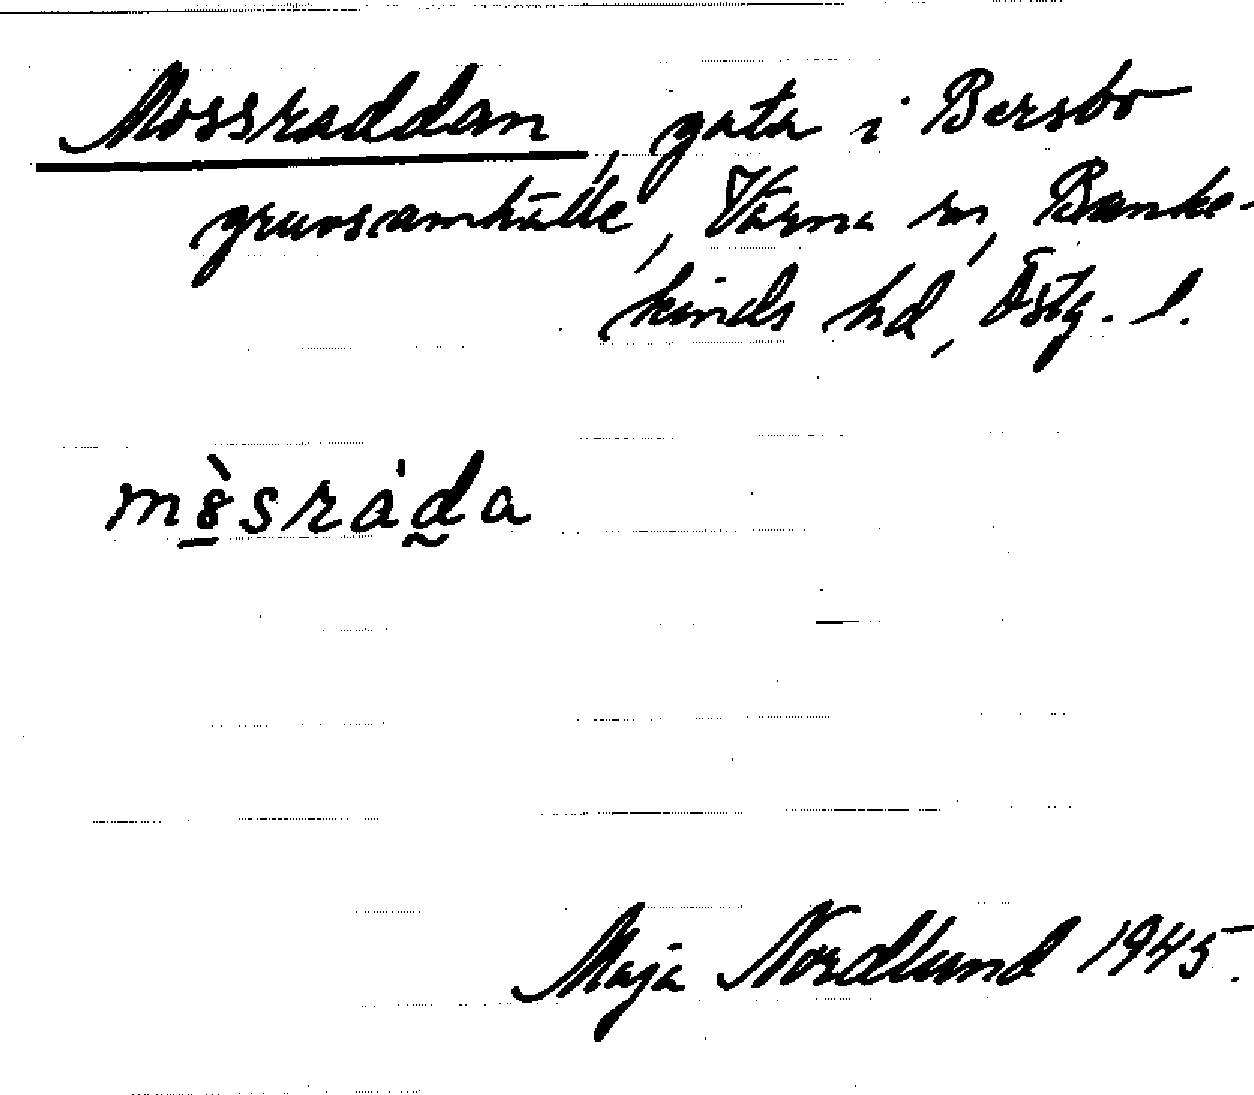 Mossraddan, gata i Bersbo
gruvsamhälle, Värna sn, Banke-
kinds hd, Östg. l.
mòsráda
Maja Nordlund 1945.